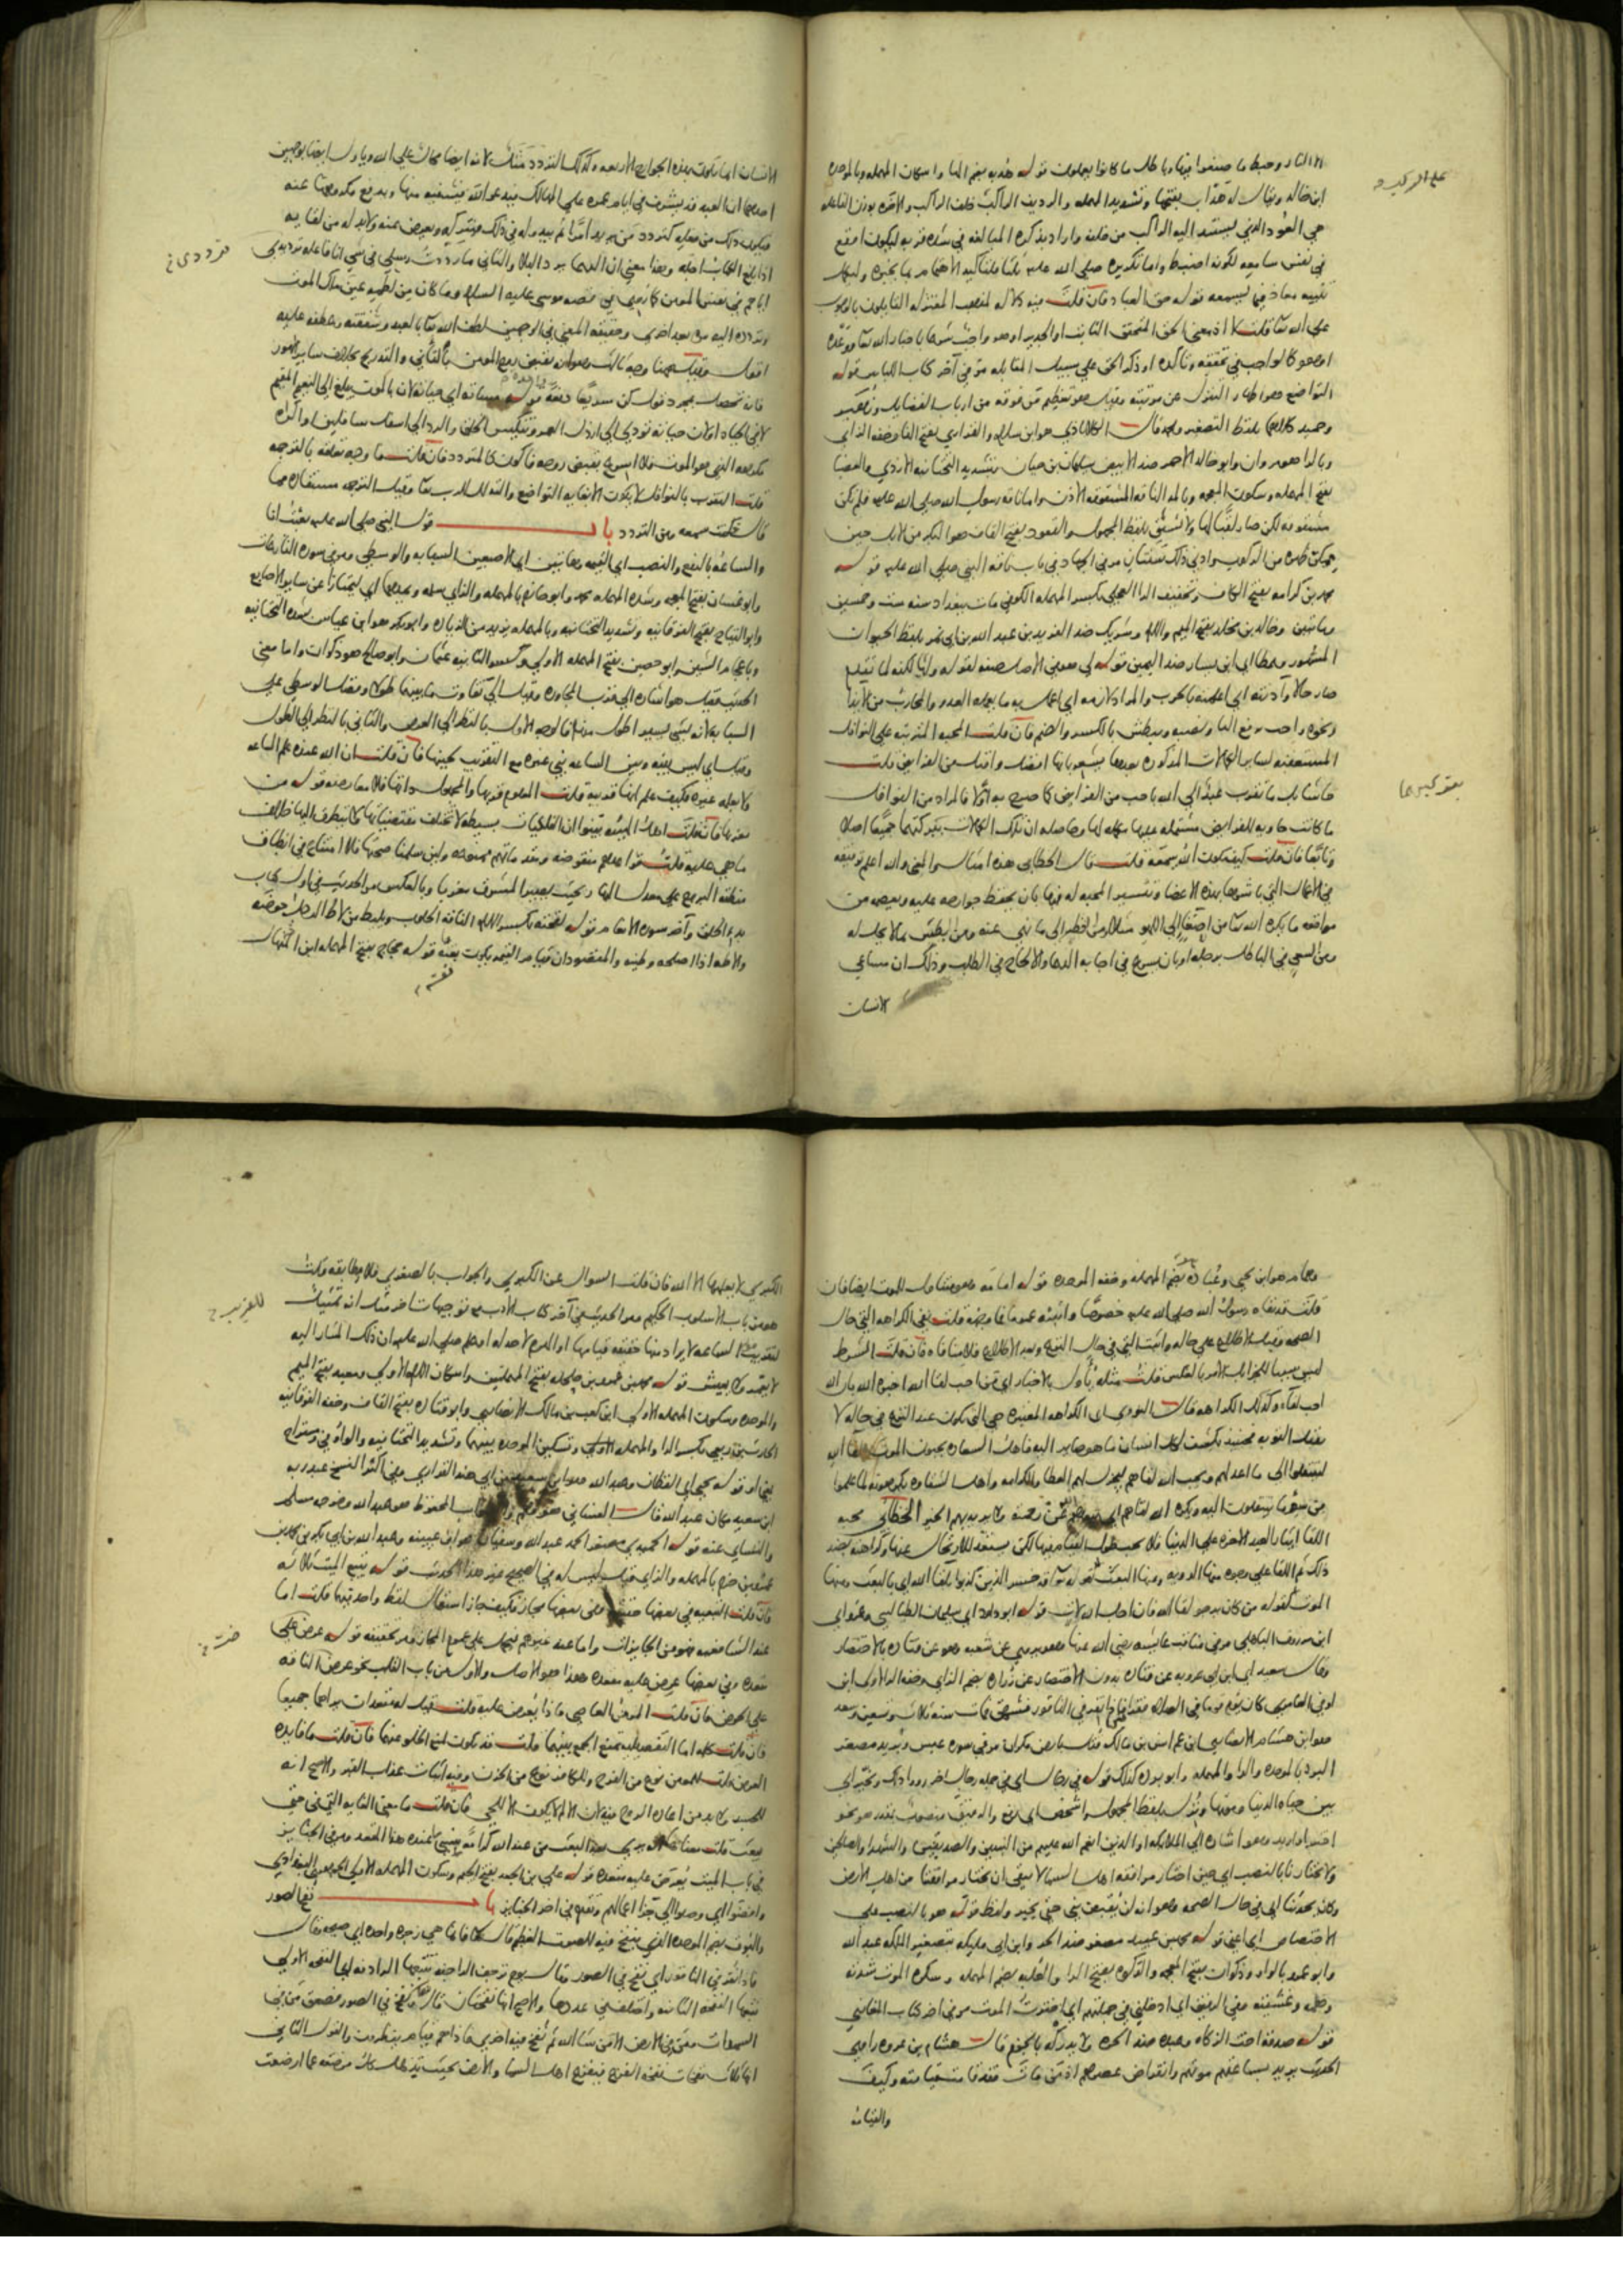 الا النار وحبط ما صنعوا فيها وباطل ما كانوا يعملون قوله هدبه بضم الها واسكان المهمله وبالموحده
ابن خالد ويقال له هداب بفتحها وتشديد المهمله والرديف الراكب خلف الراكب والآخره بوزن الفاعله
هي العود الذي يستند اليه الراكب من خلفه واراد بذكره المبالغه في شده قربه ليكون اوقع
في نفس سامعه لكونه اضبط واما تكريره صلى الله عليه ثلثا فلتاكيد الاهتمام بما يخبره وليكمل
تنبيه معاذ فيما يسمعه قوله حق العباد فان قلت فيه دلاله لمذهب المعتزله القايلون بالوجوب
على الله تعا قلت لا اذ معنى الحق المتحقق الثابت او الجدير او هو واجب شرعا باخبار الله تعا ووعده
او هو كالواجب في تحققه وتاكده او ذكر الحق على سبيل المقابله مر في آخر كتاب اللباس قوله
التواضع هو اظهار التنزل عن مرتبته وقيل هو تعظيم من فوقه من ارباب الفضايل و زهير
وحميد كلاهما بلفظ التصغير ومحمد قال الكلاباذي هو ابن سلام والفزاري بفتح الفا وخفه الزاي
وبالرا هو مروان وابو خالد الاحمر ضد الابيض سليمان بن حيان بتشديد التحتانيه الازدي والعضبا
بفتح المهمله وسكون المعجمه وبالمد الناقه المشقوقه الاذن واما ناقه رسول الله صلى الله عليه فلم تكن
مشقوقه لكن صار لقبا لها ولا تسبق بلفظ المجهول والقعود بفتح القاف هو البكر من الابل حين
يمكن ظهره من الركوب وادنى ذلك سنتان مر في الجهاد في باب ناقه النبي صلى الله عليه قوله
محمد بن كرامه بفتح الكاف وتخفيف الرا العجلي بكسر المهمله الكوفي مات ببغداد سنه ست وخمسين
ومايتين وخالد بن مخلد بفتح الميم واللام وشريك ضد الفريد بن عبد الله بن ابي نمر بلفظ الحيوان
المشهور وعطا اي ابن يسار ضد اليمين قوله لي هو في الاصل صفه لقوله وليا لكنه لما تقدم
صار حالا وآذنته اي اعلمته بالحرب والمراد لازمه اي اعمل به ما يعمله العدو والمحارب من الايذا
ونحوه واحب برفع البا ونصبه ويبطش بالكسر والضم فان قلت المحبه المترتبه على النوافل
المستعقبه لساير الكمالات المذكوره بعدها يشعر بانها افضل واقبل من الفرايض قلت
فاشا بل ما تقرب عبد الى الله باحب من الفرايض كما صرح به اولا فالمراد من النوافل
ما كانت حاويه للفرايض مشتمله عليها مكمله لها وحاصله ان تلك الكمالات بتركبهما جميعا اصلا
وتابعا فان قلت كيف يكون الله سمعه قلت قال الخطابي هذه امثال والمعنى والله اعلم توفيقه
في الاعمال التي باشرها بهذه الاعضا وتيسير المحبه له فيها بان يحفظ جوارحه عليه ويعصمه من
مواقعه ما يكره الله تعا من اصغا الى اللهو مثلا ومن نظر الى ما نهي عنه ومن بطش بما لا يحل له
ومن السعي في الباطل برجله او بان يسرع في اجابه الدعا والالحاح في الطلب وذلك ان مساعي
الانسان
الانسان انما تكون بهذه الجوارح الاربعه وكذلك التردد مثل لانه ايضا محال على الله ويأول ايضا بوجهين
احدهما ان العبد قد يشرف في ايام عمره على المهالك فيدعو الله فيشفيه منها ويدفع مكروهها عنه
فيكون ذلك من فعله كتردد من يريد امرا ثم يبدو له في ذلك فيتركه ويعرض عنه ولا بد له من لقايه
اذا بلغ الكتاب اجله وهذا معنى ان الدعا يرد البلا والثاني ما رددت رسلي في شي انا فاعله ترديدي
اياهم في نفس المومن كما روي في قصه موسى عليه السلام وما كان من لطمه عين ملك الموت
وتردده اليه مره بعد اخرى وحقيقه المعنى في الوجهين لطف الله تعا بالعبد وشفقته وعطفه عليه
اقول وقيل ههنا وجه ثالث وهو انه يقبض روح المومن بالتأني والتدريج بخلاف ساير الامور
فانه تحصل بمجرد قول كن سريعا دفعة قوله مساته اي حياته لان بالموت يبلغ الى النعيم المقيم
لا في الحياه او لان حياته تودي الى ارذل العمر وتنكيس الخلق والرد الى اسفل سافلين او اكره
مكروهه الذي هو الموت فلا اسرع بقبض روحه فاكون كالمتردد فان قلت ما وجه تعلقه بالترجمه
قلت التقرب بالنوافل لا يكون الا بغايه التواضع والتذلل للرب تعا وقيل الترجمه مستفاده مما
قال كنت سمعه ومن التردد باب قول النبي صلى الله عليه بعثت انا
والساعة بالرفع والنصب اي القيمه وكهاتين اي الاصبعين السبابه والوسطى ومر في سوره النازعات
وابو غسان بفتح المعجمه وشده المهمله محمد وابو حازم بالمهمله والزاي سلمه ويمدهما اي ليمتازا عن ساير الاصابع
وابو التياح بفتح الفوقانيه وتشديد التحتانيه وبالمهمله يزيد من الزياده وابو بكر هو ابن عياش بشده التحتانيه
وباعجام الشين وابو حصين بفتح المهمله الاولى وكسر الثانيه عثمان وابو صالح هو ذكوان واما معنى
الحديث فقيل هو اشاره الى قرب المجاوره وقيل الى تفاوت ما بينهما طولا وفضل الوسطى على
السبابه لانه شي يسير اطول منها فالوجه الاول بالنظر الى العرض والثاني بالنظر الى الطول
وقيل اي ليس بينه وبين الساعه نبي غيره مع التقريب لحينها فان قلت ان الله عنده علم الساعه
ولا يعلم غيره فكيف علم انها قريبه قلت المعلوم قربها والمجهول ذاتها فلا معارضه قوله من
مغربها فان قلت اهل الهيئه بينوا ان الفلكيات بسيطه لا تختلف مقتضياتها ولا يتطرق اليها خلاف
ما هي عليه قلت قواعدهم منقوضه ومقدماتهم ممنوعه ولين سلمنا صحتها فلا امتناع في انطباق
منطقه البروج على معدل النهار بحيث يصير المشرق مغربا وبالعكس مر الحديث في اول كتاب
بدء الخلق وآخر سوره الانعام قوله لقحته بكسر اللام الناقه الحلوب ويليط من لاط الرجل حوضه
والاطه اذا اصلحه وطينه والمقصود ان قيام القيمه يكون بغته قوله حجاج بفتح المهمله ابن المنهال
بغتة
وهمام هو ابن يحيى وعباده بضم المهمله وخفه الموحده قوله امامه وهو متناول للموت ايضا فان
قلت قد نفاه رسول الله صلى الله عليه خصوصا واثبته عموما فما وجهه قلت نفي الكراهه التي حال
الصحه وقبل الاطلاع على حاله واثبت التي في حال النزع وبعد الاطلاع فلا منافاه فان قلت الشرط
ليس سببا للجزا بل الامر بالعكس قلت مثله يأول بالاخبار اي من احب لقا الله اخبره الله بان الله
احب لقاه وكذلك الكراهه قال النووي اي الكراهه المعتبره هي التي تكون عند النزع في حاله لا
يقبل التوبه فحينئذ يكشف لكل انسان ما هو صاير اليه فاهل السعاده يحبون الموت ولقا الله
لينتقلوا الى ما اعد لهم ويحب الله لقاهم ليجزل لهم العطا والكرامه واهل الشقاوه يكرهونه لما علموا
من سوء ما ينتقلون اليه ويكره الله لقاهم اي يبعدهم عن رحمته ولا يريد بهم الخير الخطابي محبه
اللقا ايثار العبد الاخره على الدنيا فلا يحب طول القيام فيها لكن يستعد للارتحال عنها وكراهته بضد
ذلك ثم اللقا على وجوه منها الرويه ومنها البعث كقوله تعا قد خسر الذين كذبوا بلقا الله اي بالبعث ومنها
الموت كقوله من كان يرجو لقا الله فان اجل الله لات قوله ابو داود اي سليمان الطيالسي وعمرو اي
ابن مرزوق الباهلي مر في مناقب عايشه رضي الله عنها وهو يروي عن شعبه وهو عن قتاده بالاختصار
وقال سعيد اي ابن ابي عروبه عن قتاده بدون الاختصار عن زراره بضم الزاي وخفه الرا الاولى ابن
اوفى العامري كان يؤم قوما في الصلاه فقرا فاذا نقر في الناقور فشهق فمات سنه ثلاث وتسعين وسعد
هو ابن هشام الانصاري ابن عم انس بن مالك قتل بارض مكران مر في سوره عبس وبريد مصغر
البرد بالموحده والرا والمهمله وابو برده كذلك قوله في رجال اي في جمله رجال اخر رووا ذلك ويخير اي
بين حياه الدنيا وموتها ونزل بلفظ المجهول واشخص اي رفع والرفيق منصوب بمقدر هو نحو
اختار او اريد وهو اشاره الى الملايكه او الذين انعم الله عليهم من النبيين والصديقين والشهدا والصالحين
ولا يختارنا بالنصب اي حين اختار مرافقه اهل السما لا يبقى ان يختار مرافقتنا من اهل الارض
وكان يحدثنا اي في حال الصحه وهو انه لن يقبض نبي حتى يخير ولفظ قوله هو بالنصب على
الاختصاص اي اعني قوله محمد بن عبيد مصغر ضد الحر وابن ابي مليكه بتصغير الملكه عبد الله
وابو عمرو بالواو وذكوان بفتح المعجمه والركوه بفتح الرا والعلبه بضم المهمله وسكره الموت شدته
وهمه وغشيته وفي الرفيق اي ادخلني في جملتهم اي اخترت الموت مر في اخر كتاب المغازي
قوله صدقه اخت الزكاه وعبده ضد الحره ولا يدركه بالجزم قال هشام بن عروه راوي
الحديث يريد بساعتهم موتهم وانقراض عصرهم اذ من مات فقد قامت قيامته وكيف
والقيامه
الكبرى لا يعلمها الا الله فان قلت السوال عن الكبرى والجواب بالصغرى فلا مطابقه قلت
هو من باب الاسلوب الحكيم مر الحديث في آخر كتاب الادب مع توجيهات اخر مثل انه تمثيل
لتقريب الساعه لا يراد منها حقيقه قيامها او الهرم لا حد له او علم صلى الله عليه ان ذلك المشار اليه
لا يعمر ولا يعيش قوله محمد بن عمرو بن حلحله بفتح المهملتين واسكان اللام الاولى ومعبد بفتح الميم
والموحده وسكون المهمله الاولى ابن كعب بن مالك الانصاري وابو قتاده بفتح القاف وخفه الفوقانيه
الحارث بن ربعي بكسر الرا والمهمله الاولى وتسكين الموحده بينهما وتشديد التحتانيه والواو في ومستراح
بمعنى او قوله يحيى اي القطان وعبد الله هو ابن سعيد بن ابي هند الفزاري وفي اكثر النسخ عبد ربه
ابن سعيد مكان عبد الله قال الغساني هو وهم والصواب المحفوظ هو عبد الله وخرجه مسلم
والنسائي عنه قوله الحميدي مصغر الحمد عبد الله وسفيان هو ابن عيينه وعبد الله بن ابي بكر بن محمد بن
عمرو بن حزم بالمهمله والزاي قيل ليس له في الصحيح غير هذا الحديث قوله يتبع الميت ثلاثه
فان قلت التبعيه في بعضها حقيقه وفي بعضها مجاز فكيف جاز استعمال لفظ واحد فيها قلت اما
عند الشافعيه فهو من الجايزات واما عند غيرهم فيحمل على عموم المجاز مر تحقيقه قوله عرض على
مقعده وفي بعضها عرض عليه مقعده وهذا هو الاصل والاول من باب القلب نحو عرض الناقه
على الحوض فان قلت المومن العاصي ماذا يعرض عليه قلت قيل له مقعدان يراهما جميعا
فان قلت كلمه اما التفصيليه تمنع الجمع بينهما قلت قد تكون لمنع الخلو عنهما فان قلت ما فايده
العرض قلت للمومن نوع من الفرح وللكافر نوع من الحزن وفيه اثبات عذاب القبر والاصح انه
للجسد ولا بد من اعاده الروح فيه لان الالم لا يكون الا للحي فان قلت ما معنى الغايه التي في حتى
يبعث قلت معناه انه يرى بعد البعث من عند الله كرامه ينسى عنده هذا المقعد ومر في الجنايز
في باب الميت يعرض عليه مقعده قوله علي بن الجعد بفتح الجيم وسكون المهمله الاولى الجوهري البغدادي
وافضوا اي وصلوا الى جزا اعمالهم وتقدم في آخر الجنايز باب نفخ الصور
والبوق بضم الموحده الذي ينفخ فيه للصوت العظيم قال تعا فانما هي زجره واحده اي صيحه وقال
فاذا نقر في الناقور اي نفخ في الصور وقال يوم ترجف الراجفه تتبعها الرادفه اي النفخه الاولى
تتبعها النفخه الثانيه واختلف في عددها والاصح انها نفختان قال تعا ونفخ في الصور فصعق من في
السموات ومن في الارض الا من شا الله ثم نفخ فيه اخرى فاذا هم قيام ينظرون والقول الثاني
انها ثلاث نفخات نفخه الفزع فيفزع اهل السما والارض بحيث تذهل كل مرضعه عما ارضعت